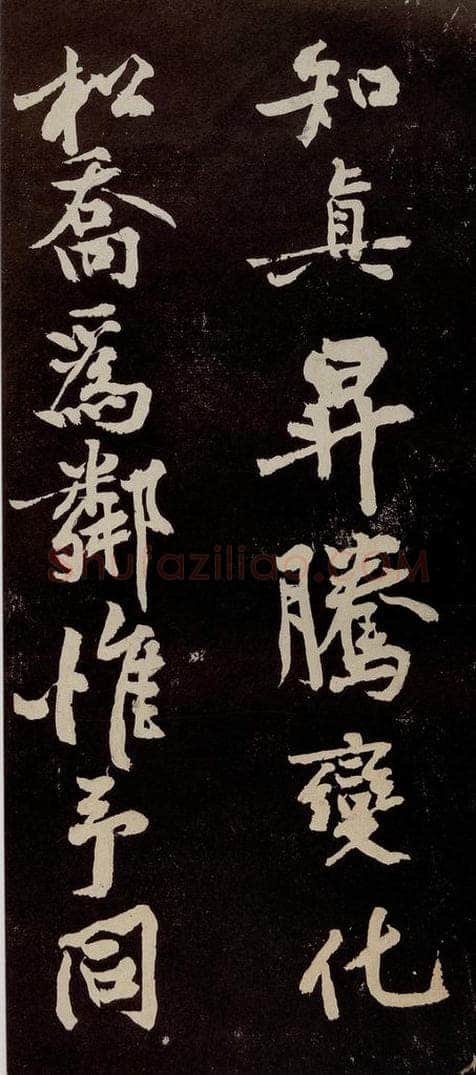 知真昇騰變化
松喬為鄰惟予同
Shufaziliao.COM